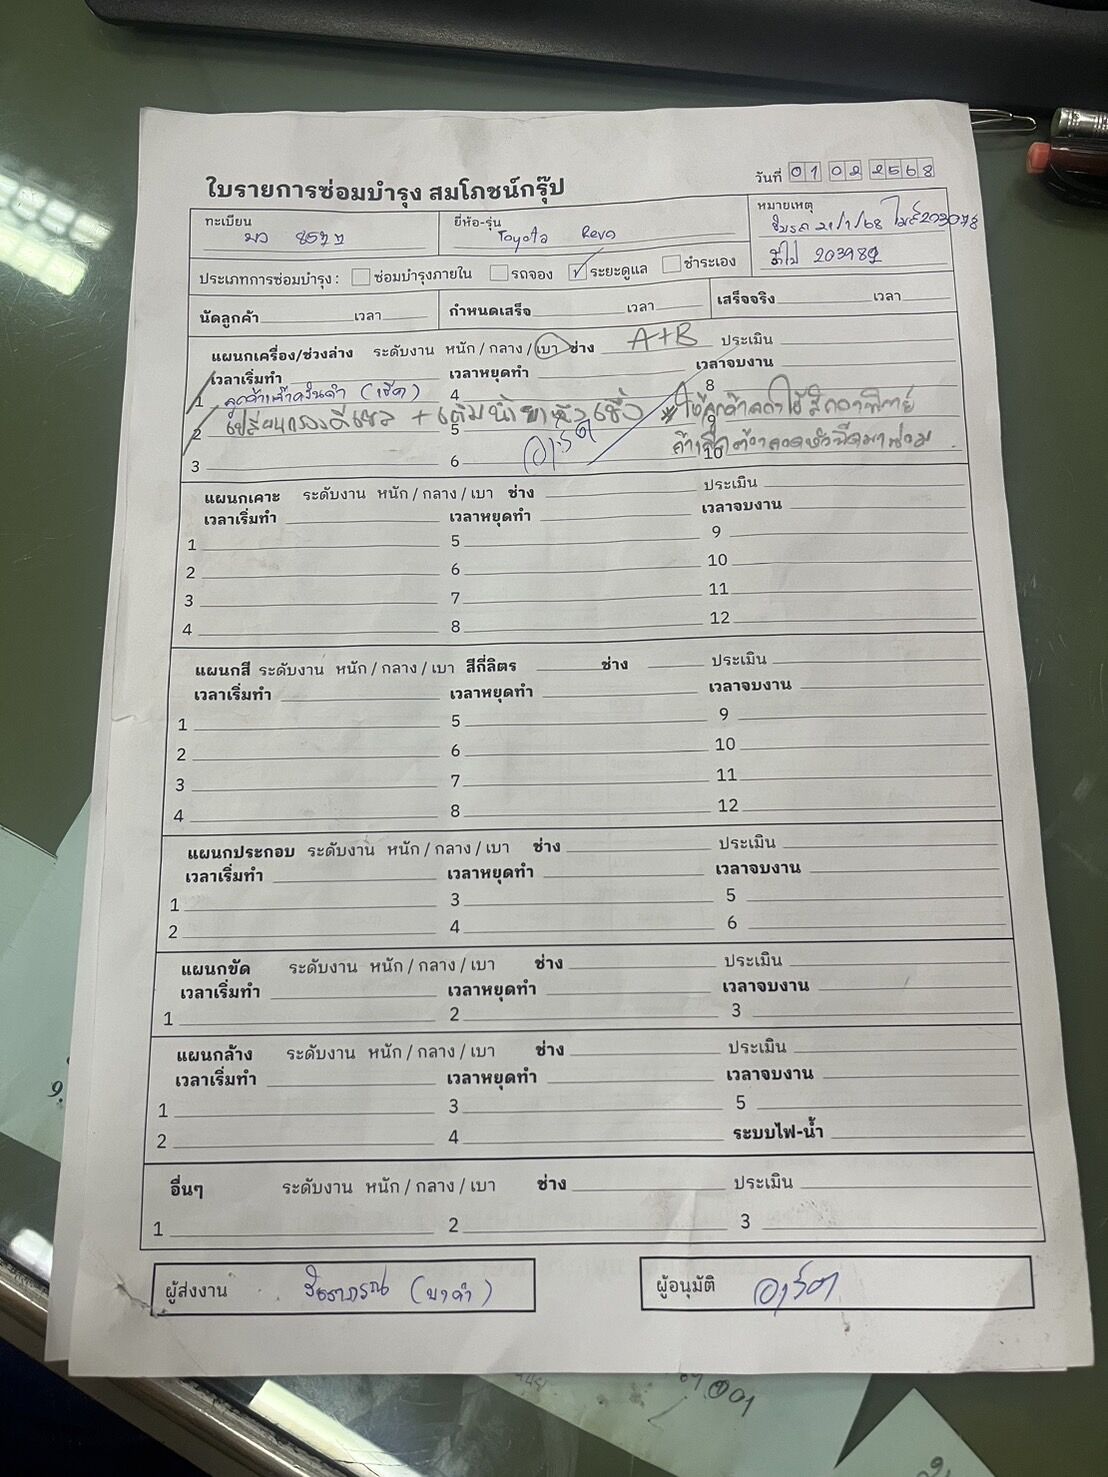 ใบรายการซ่อมบำรุง สมโภชน์กรุ๊ป
วันที่ 01 02 2568
ทะเบียน
ยี่ห้อ-รุ่น Toyota Revo
หมายเหตุ
21/1/68 ไมล์ 203078
ประเภทการซ่อมบำรุง : ซ่อมบำรุงภายใน รถจอง ระยะดูแล ชำระเอง
นัดลูกค้า เวลา กำหนดเสร็จ เวลา เสร็จจริง เวลา
แผนกเครื่อง/ช่วงล่าง ระดับงาน หนัก / กลาง / เบา ช่าง A+B ประเมิน
เวลาเริ่มทำ เวลาหยุดทำ เวลาจบงาน
1 ลูกค้าแจ้งควันดำ (เช็ค) 4 8
2 เปลี่ยนกรองดีเซล + เติมน้ำยา 5 9
3 6 10
แผนกเคาะ ระดับงาน หนัก / กลาง / เบา ช่าง ประเมิน
เวลาเริ่มทำ เวลาหยุดทำ เวลาจบงาน
1 5 9
2 6 10
3 7 11
4 8 12
แผนกสี ระดับงาน หนัก / กลาง / เบา สีกี่ลิตร ช่าง ประเมิน
เวลาเริ่มทำ เวลาหยุดทำ เวลาจบงาน
1 5 9
2 6 10
3 7 11
4 8 12
แผนกประกอบ ระดับงาน หนัก / กลาง / เบา ช่าง ประเมิน
เวลาเริ่มทำ เวลาหยุดทำ เวลาจบงาน
1 3 5
2 4 6
แผนกขัด ระดับงาน หนัก / กลาง / เบา ช่าง ประเมิน
เวลาเริ่มทำ เวลาหยุดทำ เวลาจบงาน
1 2 3
แผนกล้าง ระดับงาน หนัก / กลาง / เบา ช่าง ประเมิน
เวลาเริ่มทำ เวลาหยุดทำ เวลาจบงาน
1 3 5
2 4 ระบบไฟ-น้ำ
อื่นๆ ระดับงาน หนัก / กลาง / เบา ช่าง ประเมิน
1 2 3
ผู้ส่งงาน
ผู้อนุมัติ